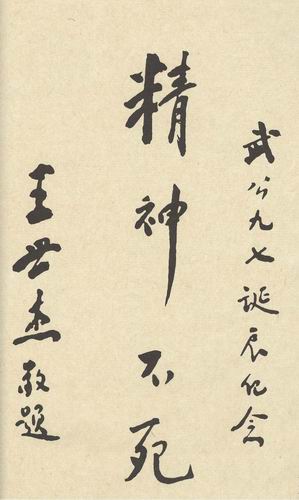 武公九七诞辰纪念
精神不死
王世杰敬题